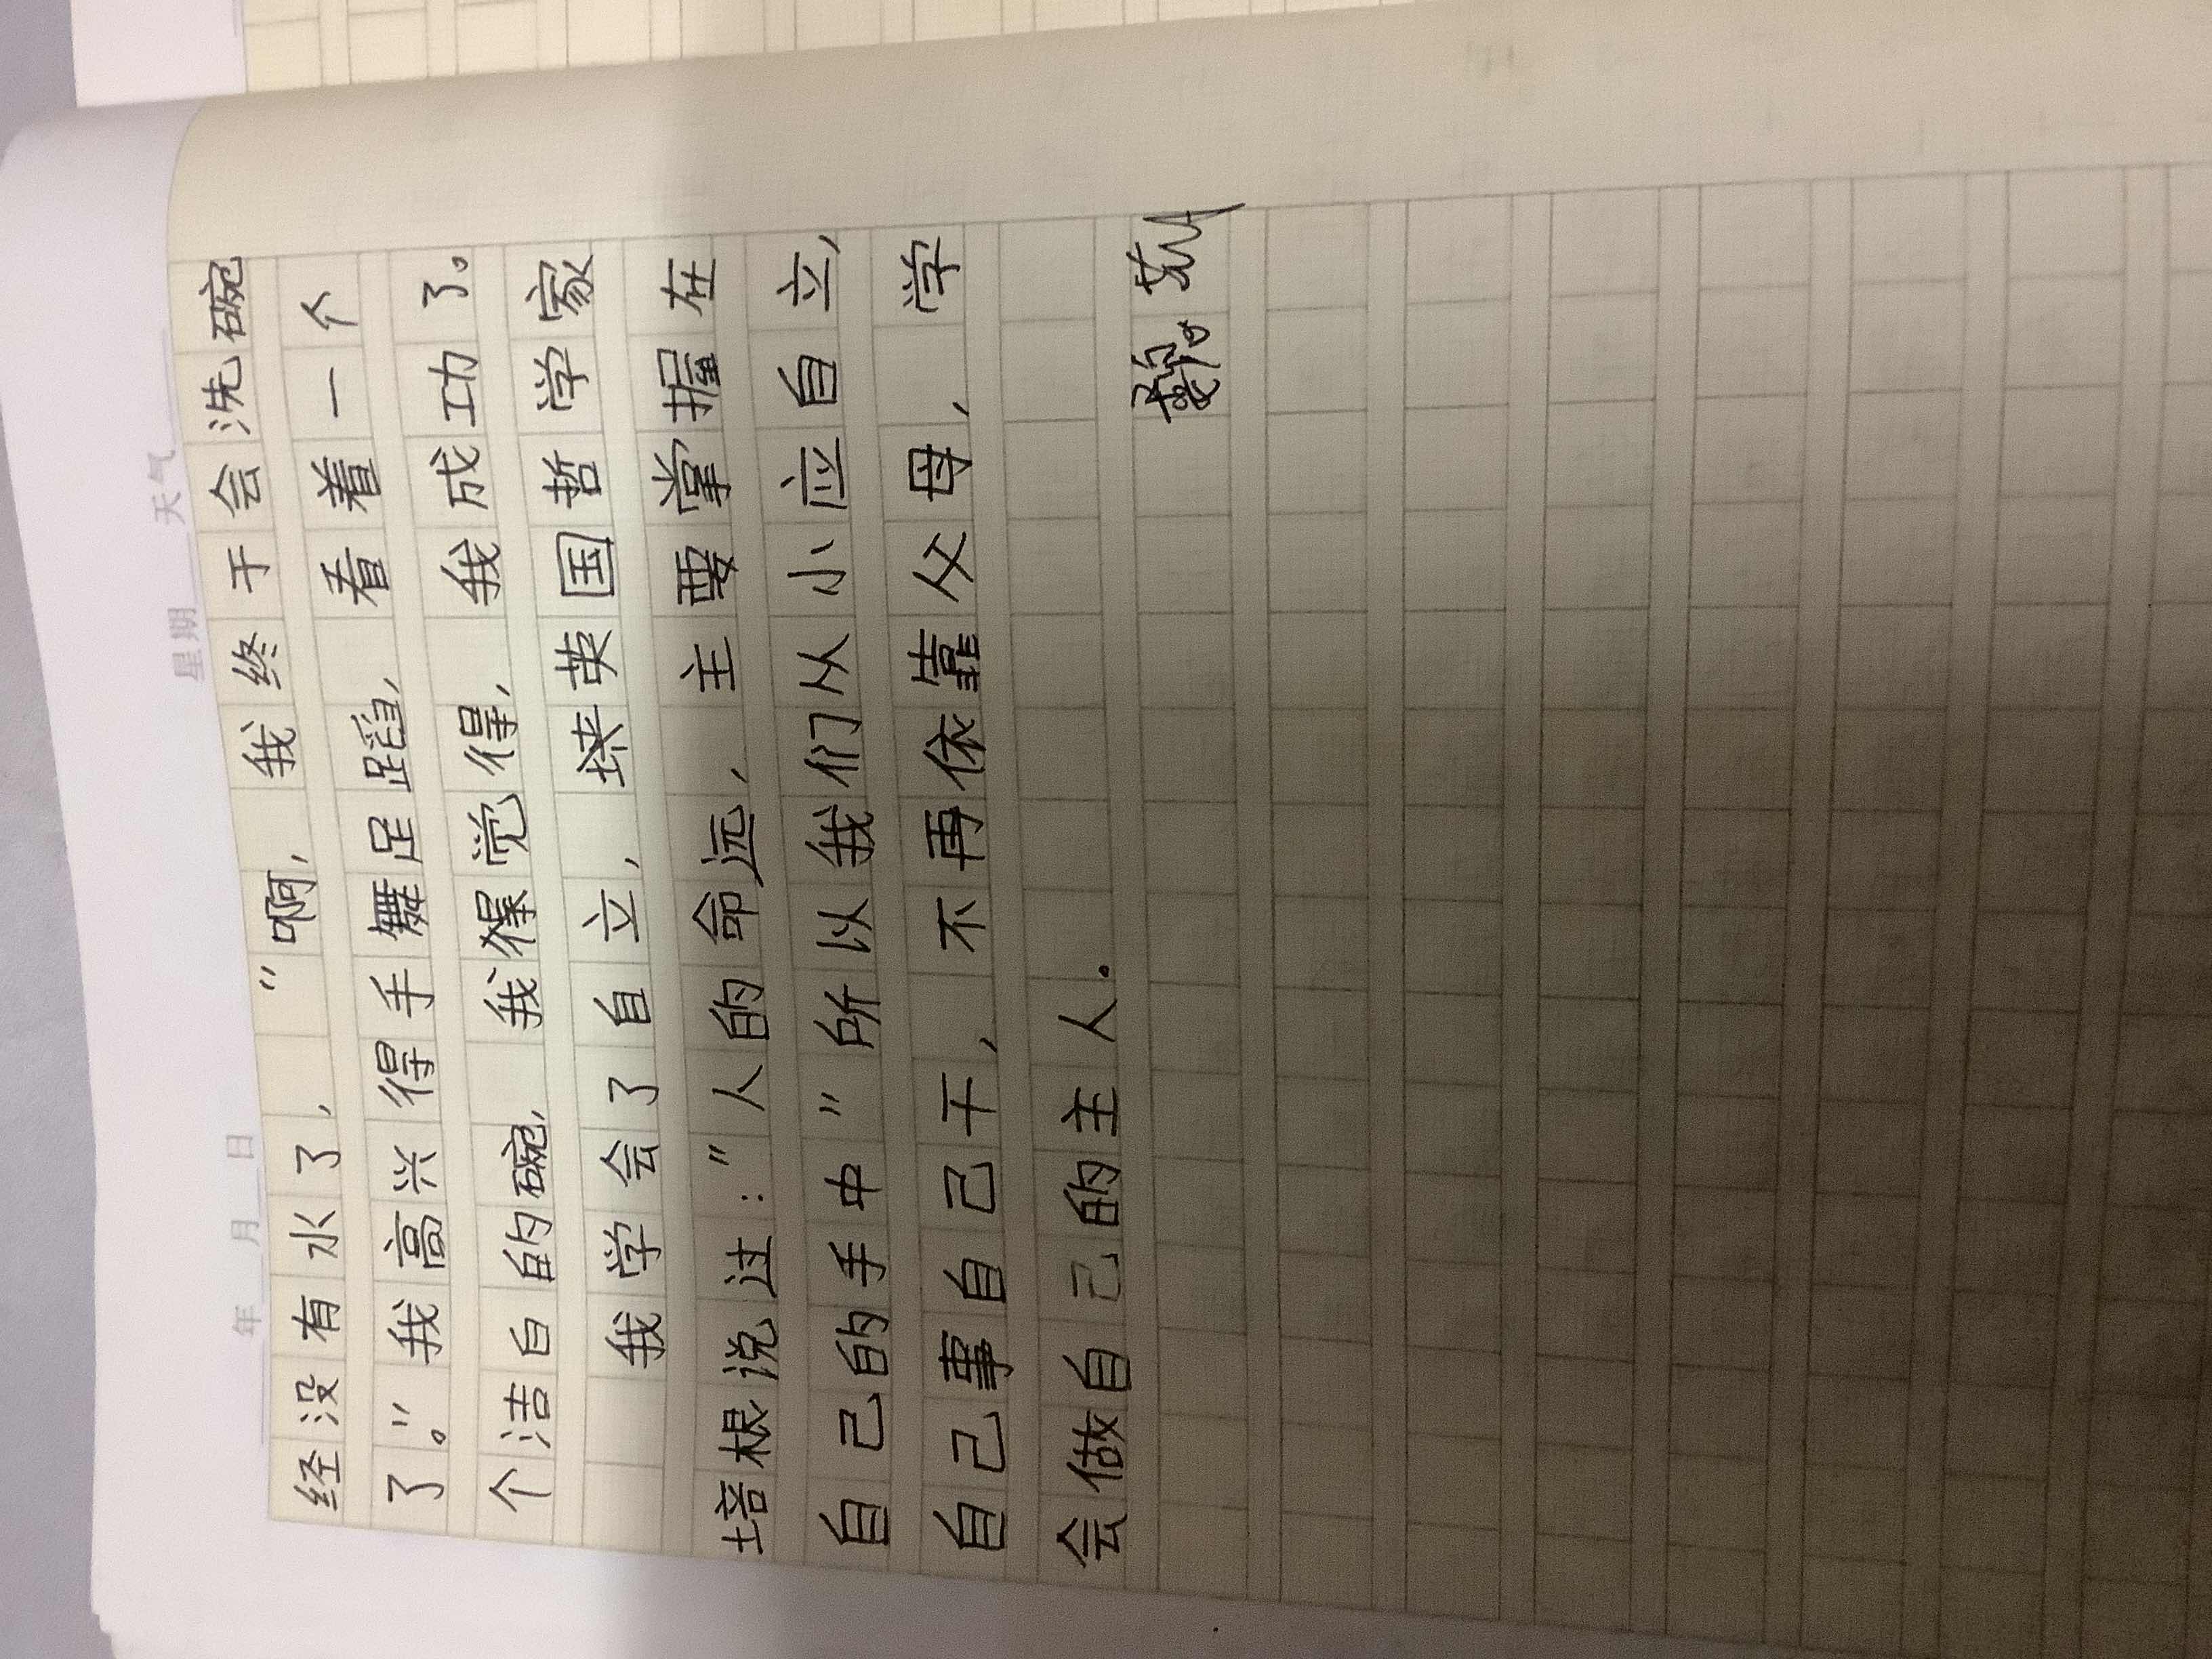 年 月 日 星期 天气
经没有水了, "啊,我终于会洗碗
了。"我高兴得手舞足蹈,看着一个
个洁白的碗,我觉得,我成功了。
我学会了自立,英国哲学家
培根说过:"人的命远,主要掌握在
自己的手中"所以我们从小应自立,
自己事自己干,不再依靠父母,学
会做自己的主人.